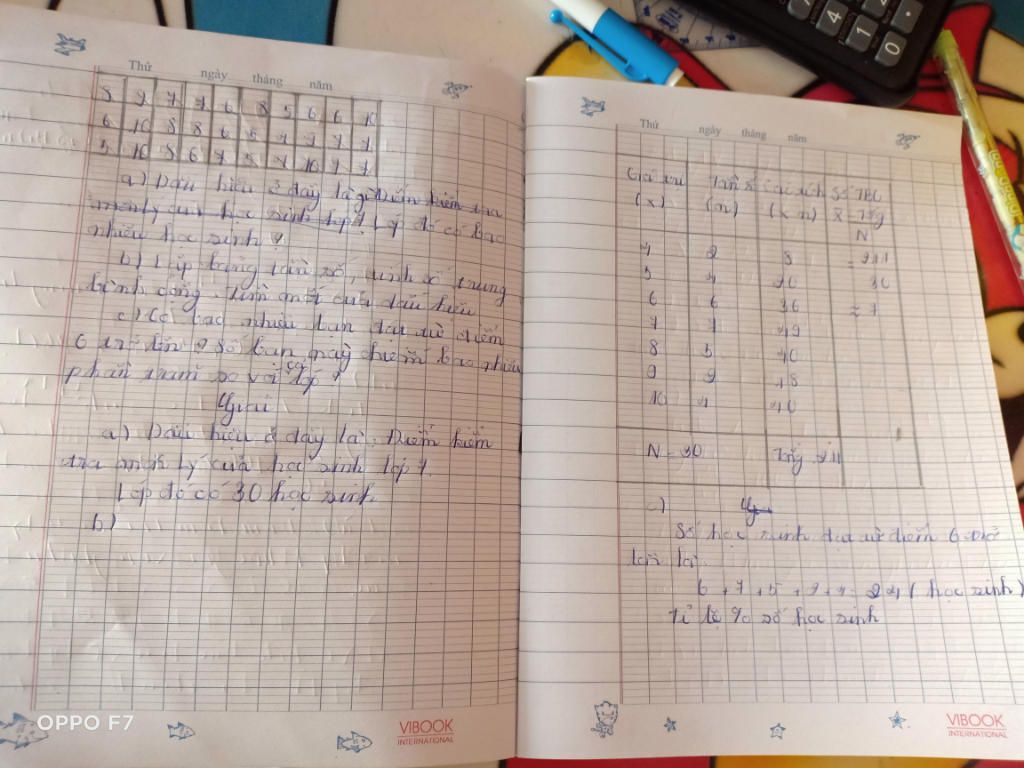 Thứ ngày tháng năm
8 9 7 7 6 8 5 6 6 10
6 10 8 8 6 5 7 9 7 7
5 10 8 6 7 5 7 10 7 7
a) Dấu hiệu ở đây là gì Điểm kiểm tra
môn lý của học sinh lớp 7 Lớp đó có bao
nhiêu học sinh ?
b) Lập bảng tần số, tính số trung
bình cộng. Tìm mốt của dấu hiệu
c) Có bao nhiêu bạn đạt từ điểm
6 trở lên ? số bạn này chiếm bao nhiêu
phần trăm so với cả lớp ?
Giải
a) Dấu hiệu ở đây là: Điểm kiểm
tra môn lý của học sinh lớp 7.
Lớp đó có 30 học sinh
b)
OPPO F7
VIBOOK
INTERNATIONAL
Thứ ngày tháng năm
Giá trị Tần số Các tích Số TBC
(x) (n) (x n)
N
4 2 8 = 211
5 4 20 30
6 6 36 ≈ 7
7 7 49
8 5 40
9 2 18
10 4 40
N = 30 Tổng 211
c)
Số học sinh đạt từ điểm 6 trở
lên là
6 + 7 + 5 + 2 + 4 = 24 ( học sinh )
Tỉ lệ % số học sinh
VIBOOK
INTERNATIONAL